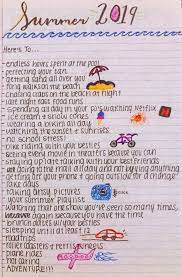 Summer 2019
Here's To...
-endless hours spent at the pool
-perfecting your tan
-getting asked out over you
-long walks on the beach
-chasing crabs on the beach at night
-late night fast food runs
-spending all day in your pj's watching Netflix
-ice cream & snow cones
-wearing a bikini all day
-watching the sunset & sunrises
-no school stress!
-bike riding with your besties
-seeing every movie in theaters because you can
-staying up late talking with your best friends
-going to the mall all day and not buying anything
-getting off your phone & going out for a change!
-late drives
-taking artsy pictures
-your summer playlist
-watching that one show you've seen so many times,
because again because you have the time
-brunch dates w/ your besties
-sleeping until at least 12
-roadtrips
-roller coasters & ferris wheels
-plane rides
-hot days
-ADVENTURE!!!!